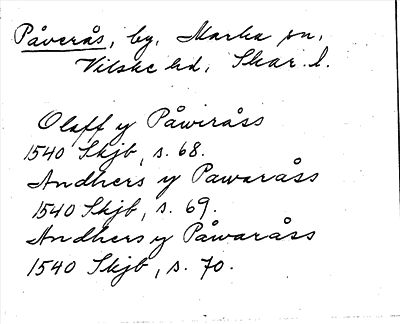 Påverås, by, Marka sn,
Vilske hd, Skar. l.
Olaff y Påwiråss
1540 Skjb, s. 68.
Andhers y Pawaråss
1540 Skjb, s. 69.
Andhers y Påwaråss
1540 Skjb, s. 70.